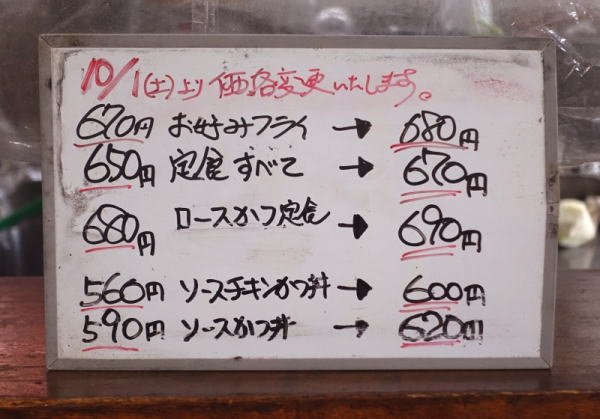 10/1(土)より価格変更いたします。
670円 お好みフライ → 680円
650円 定食すべて → 670円
680円 ロースかつ定食 → 690円
560円 ソースチキンかつ丼 → 600円
590円 ソースかつ丼 → 620円